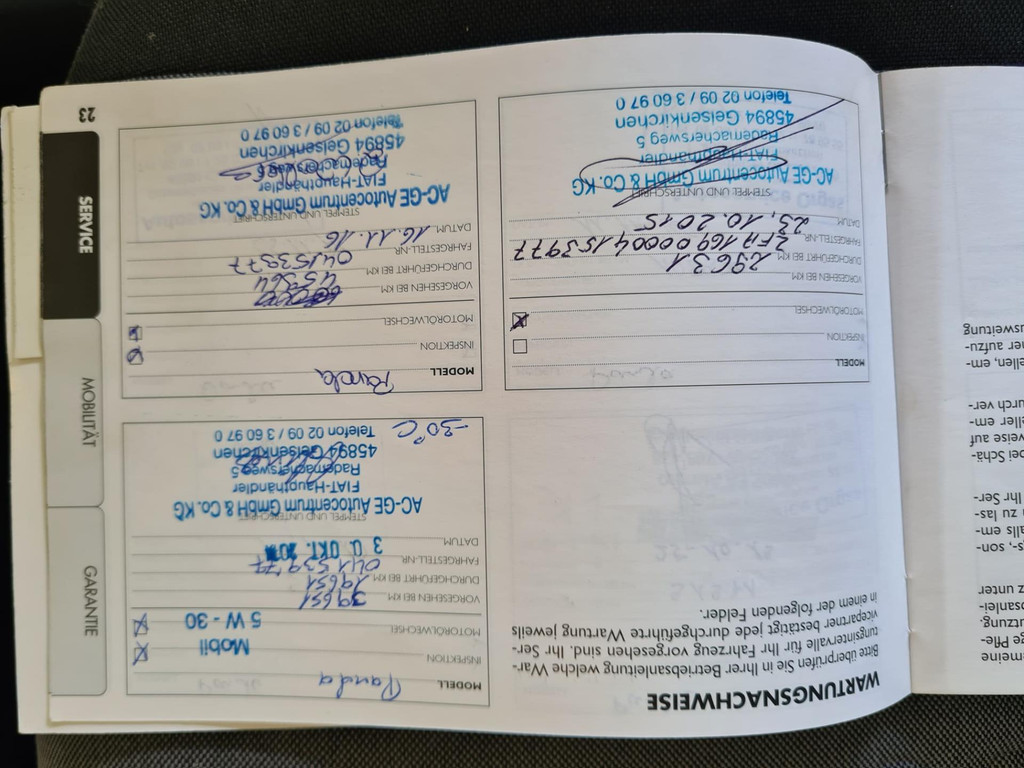 emeine
ge Pfle-
utzung.
osanlei-
z unter
s-, son-
alls em-
n zu las-
Ihr Ser-
bei Schä-
weise auf
eller em-
durch ver-
ellen, em-
ner aufzu-
usweitung
WARTUNGSNACHWEISE
Bitte überprüfen Sie in Ihrer Betriebsanleitung welche War-
tungsintervalle für Ihr Fahrzeug vorgesehen sind. Ihr Ser-
vicepartner bestätigt jede durchgeführte Wartung jeweils
in einem der folgenden Felder.
MODELL
INSPEKTION
MOTORÖLWECHSEL
VORGESEHEN BEI KM
DURCHGEFÜHRT BEI KM 29631
FAHRGESTELL-NR. ZFA16900004153977
DATUM 23.10.2015
STEMPEL UND UNTERSCHRIFT
AC-GE Autocentrum GmbH & Co. KG
FIAT-Haupthändler
Rademachersweg 5
45894 Gelsenkirchen
Telefon 02 09 / 3 60 97 0
MODELL Panda
INSPEKTION Mobil
MOTORÖLWECHSEL 5 W - 30
VORGESEHEN BEI KM 39651
DURCHGEFÜHRT BEI KM 19651
FAHRGESTELL-NR. 04153977
DATUM 3 0. OKT.
STEMPEL UND UNTERSCHRIFT
AC-GE Autocentrum GmbH & Co. KG
FIAT-Haupthändler
Rademachersweg 5
45894 Gelsenkirchen
Telefon 02 09 / 3 60 97 0
-30°C
MODELL Panda
INSPEKTION
MOTORÖLWECHSEL
VORGESEHEN BEI KM
DURCHGEFÜHRT BEI KM 45364
FAHRGESTELL-NR. 04153977
DATUM 16.11.16
STEMPEL UND UNTERSCHRIFT
AC-GE Autocentrum GmbH & Co. KG
FIAT-Haupthändler
Rademachersweg 5
45894 Gelsenkirchen
Telefon 02 09 / 3 60 97 0
23
GARANTIE
MOBILITÄT
SERVICE